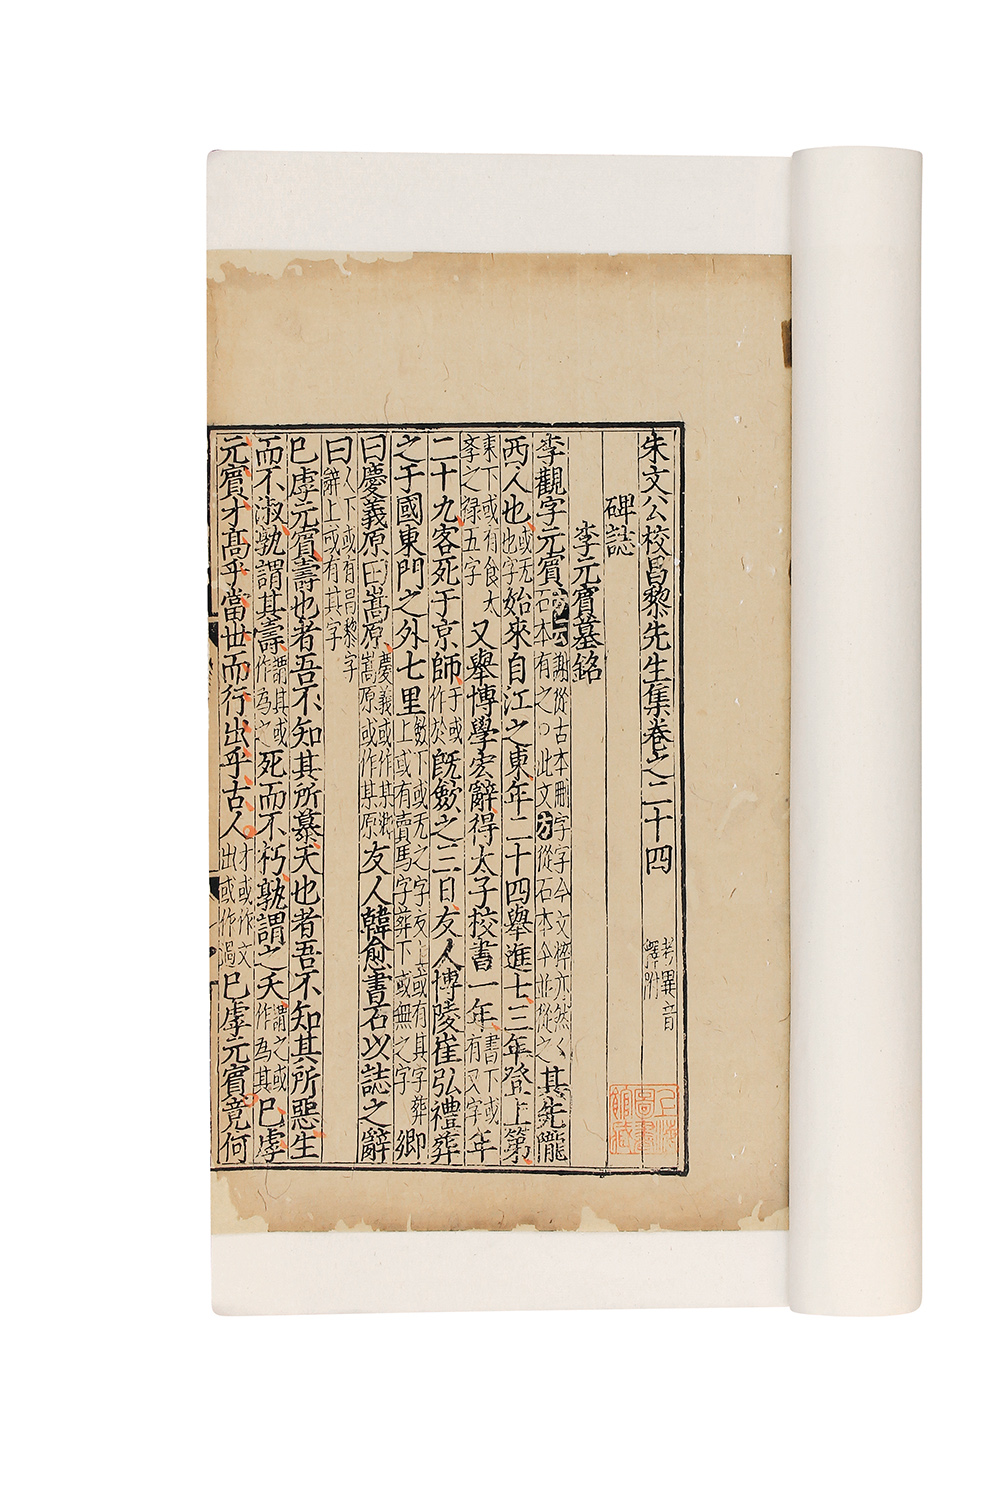 朱文公校昌黎先生集卷之二十四 考異音釋附
碑誌
李元賓墓銘
李觀字元賓方云石本有之○此文謝從古本刪字字今文粹亦然方從石本今並從之其先隴
西人也或无也字始來自江之東年二十四舉進士三年登上第
東下或有食太學之祿五字又舉博學宏辭得太子校書一年書下或有又字年
二十九客死于京師于或作於旣斂之三日友人博陵崔弘禮葬
之于國東門之外七里斂下或无之字友上或有其字葬上或有賣馬字葬下或無之字鄉
曰慶義原曰嵩原慶義或作某鄉嵩原或作某原友人韓愈書石以誌之辭
曰人下或有昌黎字辭上或有其字
已虖元賓壽也者吾不知其所慕夭也者吾不知其所惡生
而不淑孰謂其壽謂其或作為之死而不朽孰謂之夭謂之或作為其已虖
元賓才高乎當世而行出乎古人才或作文出或作過已虖元賓竟何
上海圖書館藏